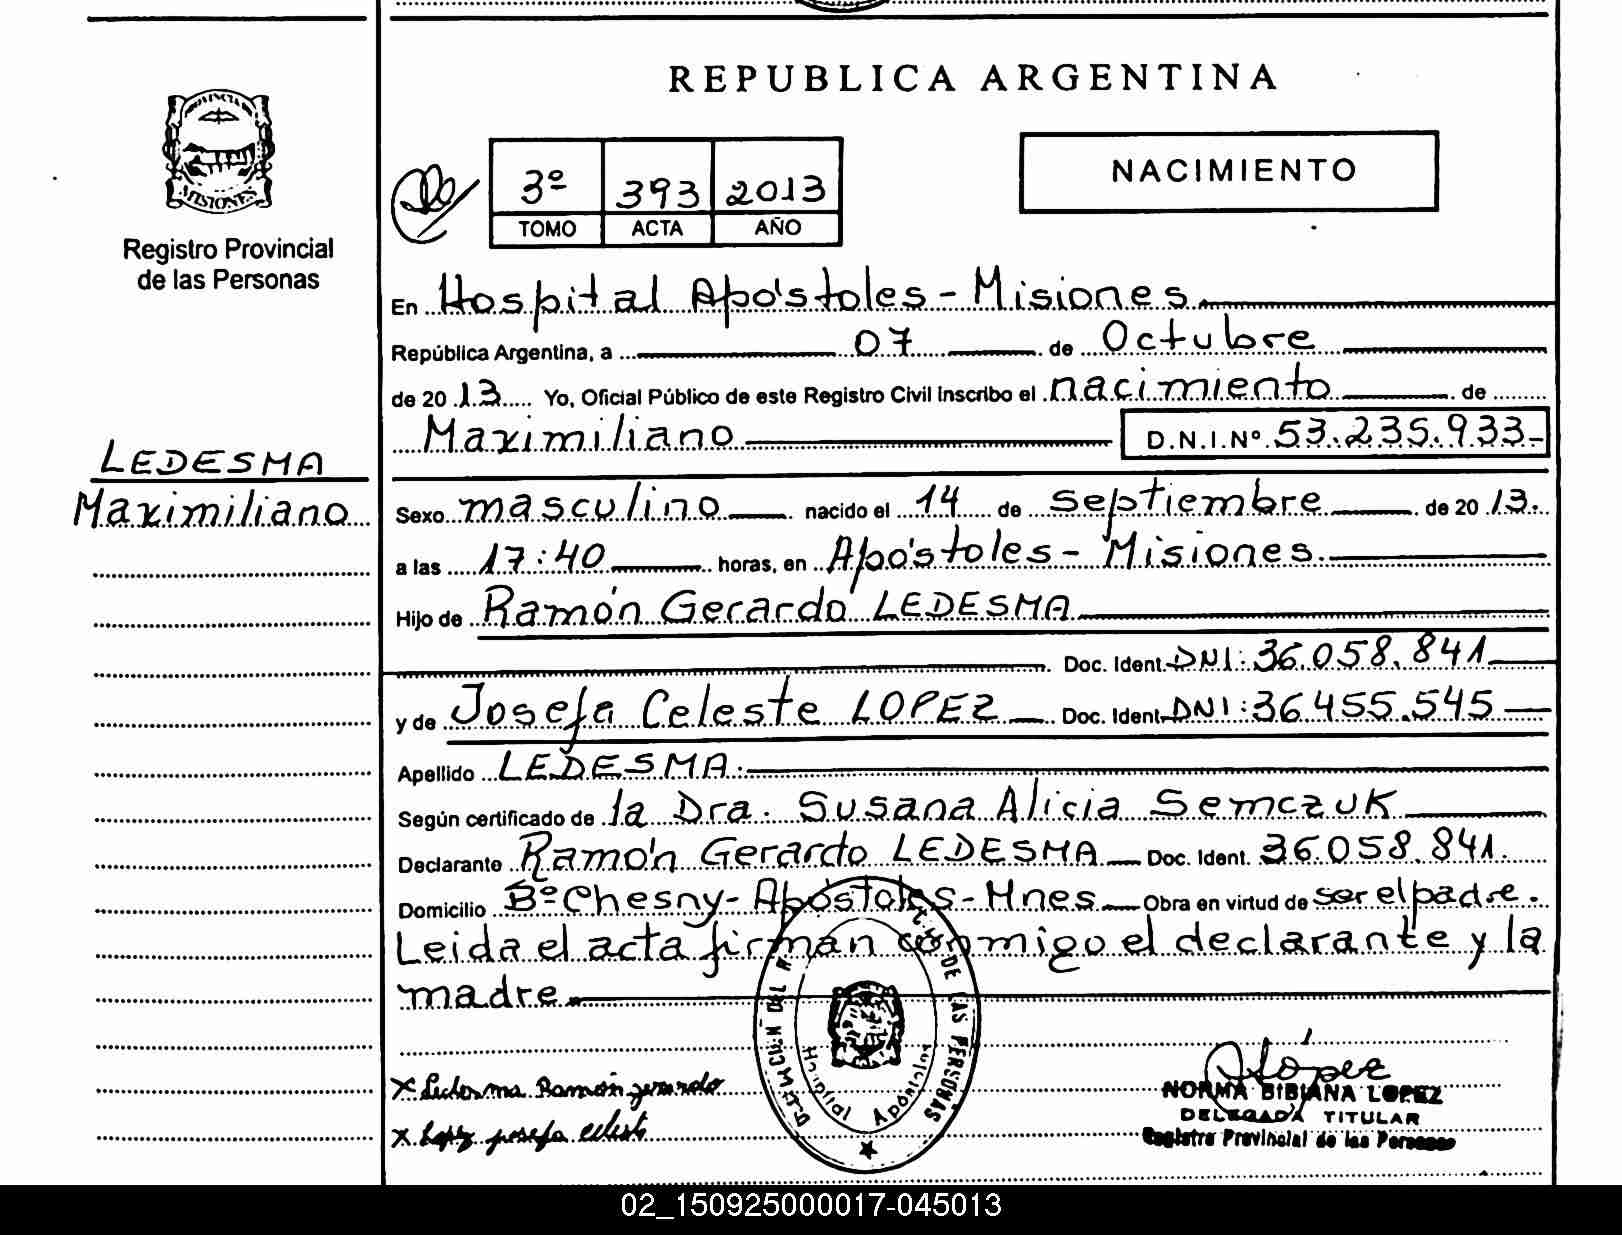 REPUBLICA ARGENTINA
PROVINCIA DE
MISIONES
Registro Provincial
de las Personas
3º 393 2013
TOMO ACTA AÑO
NACIMIENTO
En Hospital Apóstoles - Misiones
República Argentina, a 07 de Octubre
de 2013 Yo, Oficial Público de este Registro Civil Inscribo el nacimiento de
Maximiliano D.N.I.Nº 53.235.933-
LEDESMA
Maximiliano
Sexo masculino nacido el 14 de Septiembre de 2013.
a las 17:40 horas, en Apóstoles - Misiones.
Hijo de Ramón Gerardo LEDESMA
Doc. Ident. DNI: 36.058.841
y de Josefa Celeste LOPEZ Doc. Ident. DNI: 36.455.545
Apellido LEDESMA.
Según certificado de la Dra. Susana Alicia Semczuk
Declarante Ramón Gerardo LEDESMA Doc. Ident. 36.058.841.
Domicilio Bº Chesny - Apóstoles - Mnes Obra en virtud de ser el padre.
Leida el acta firman conmigo el declarante y la
madre
DE LAS PERSONAS
Hospital Apóstoles
x Ledesma Ramón gerardo
x Lopez josefa celeste
López
NORMA BIBIANA LOPEZ
DELEGADA TITULAR
Registro Provincial de las Personas
02_150925000017-045013